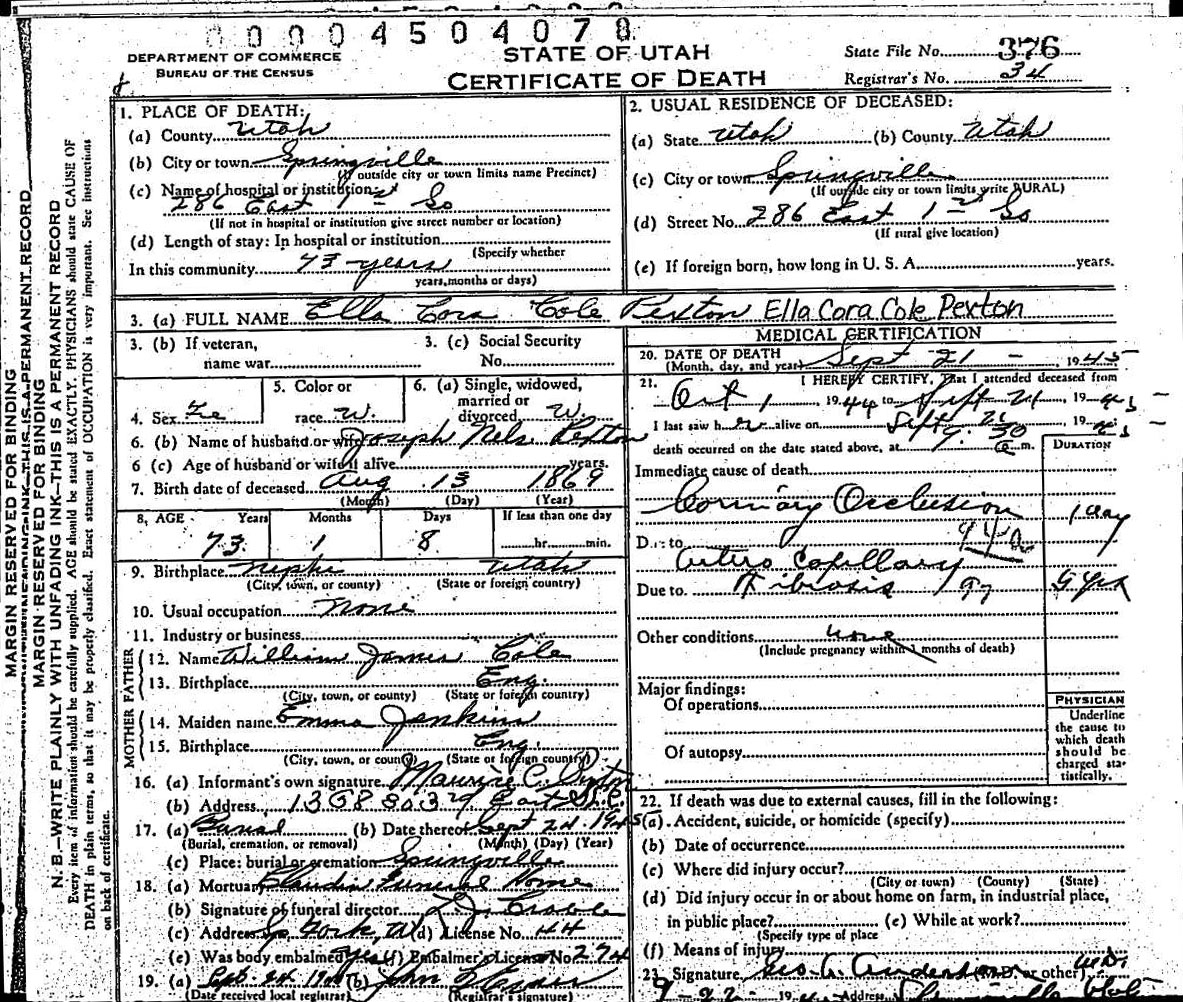 0 0 0 0 4 5 0 4 0 7 8
DEPARTMENT OF COMMERCE
BUREAU OF THE CENSUS
STATE OF UTAH
CERTIFICATE OF DEATH
State File No. 376
Registrar's No. 34
MARGIN RESERVED FOR BINDING
MARGIN RESERVED FOR BINDING
N. B.—WRITE PLAINLY WITH UNFADING INK—THIS IS A PERMANENT RECORD
Every item of information should be carefully supplied. AGE should be stated EXACTLY. PHYSICIANS should state CAUSE OF
DEATH in plain terms, so that it may be properly classified. Exact statement of OCCUPATION is very important. See instructions
on back of certificate.
1. PLACE OF DEATH:
(a) County Utah
(b) City or town Springville
(If outside city or town limits name Precinct)
(c) Name of hospital or institution:
286 East 1st So
(If not in hospital or institution give street number or location)
(d) Length of stay: In hospital or institution
(Specify whether
In this community 73 years
years, months or days)
2. USUAL RESIDENCE OF DECEASED:
(a) State Utah (b) County Utah
(c) City or town Springville
(If outside city or town limits write RURAL)
(d) Street No. 286 East 1st So
(If rural give location)
(e) If foreign born, how long in U. S. A. years.
3. (a) FULL NAME Ella Cora Cole Pexton Ella Cora Cole Pexton
3. (b) If veteran,
name war
3. (c) Social Security
No.
4. Sex Fe
5. Color or
race W.
6. (a) Single, widowed,
married or
divorced W.
6. (b) Name of husband or wife Joseph Nels Pexton
6 (c) Age of husband or wife if alive years.
7. Birth date of deceased Aug 13 1869
(Month) (Day) (Year)
8. AGE Years Months Days If less than one day
73 1 8 hr. min.
9. Birthplace Nephi Utah
(City, town, or county) (State or foreign country)
10. Usual occupation None
11. Industry or business
FATHER
12. Name William James Cole
13. Birthplace Eng.
(City, town, or county) (State or foreign country)
MOTHER
14. Maiden name Emma Jenkins
15. Birthplace Eng.
(City, town, or county) (State or foreign country)
16. (a) Informant's own signature Maurice C. Pexton
(b) Address 1368
17. (a) Burial (b) Date thereof Sept 24 1945
(Burial, cremation, or removal) (Month) (Day) (Year)
(c) Place: burial or cremation Springville
18. (a) Mortuary Funeral Home
(b) Signature of funeral director
(c) Address Sp Fork, (d) License No. 44
(e) Was body embalmed Yes (f) Embalmer's License No 274
19. (a) (b) John
(Date received local registrar) (Registrar's signature)
MEDICAL CERTIFICATION
20. DATE OF DEATH
(Month, day, and year) Sept 21 - , 1945
21. I HEREBY CERTIFY, That I attended deceased from
Oct 1, 1944 to Sept 21, 1945
I last saw her alive on Sept. 21, 1945
death occurred on the date stated above, at 9:30 a m.
DURATION
Immediate cause of death
Coronary Occlusion 1 day
94a
Due to
Arterio Capillary
Due to Fibrosis 97
Other conditions none
(Include pregnancy within 3 months of death)
Major findings:
Of operations
Of autopsy
PHYSICIAN
Underline
the cause to
which death
should be
charged sta-
tistically.
22. If death was due to external causes, fill in the following:
(a) Accident, suicide, or homicide (specify)
(b) Date of occurrence
(c) Where did injury occur?
(City or town) (County) (State)
(d) Did injury occur in or about home on farm, in industrial place,
in public place? (e) While at work?
(Specify type of place
(f) Means of injury
23. Signature Geo. A. Anderson (M.D. or other) M.D.
9-22- Address Springville Utah